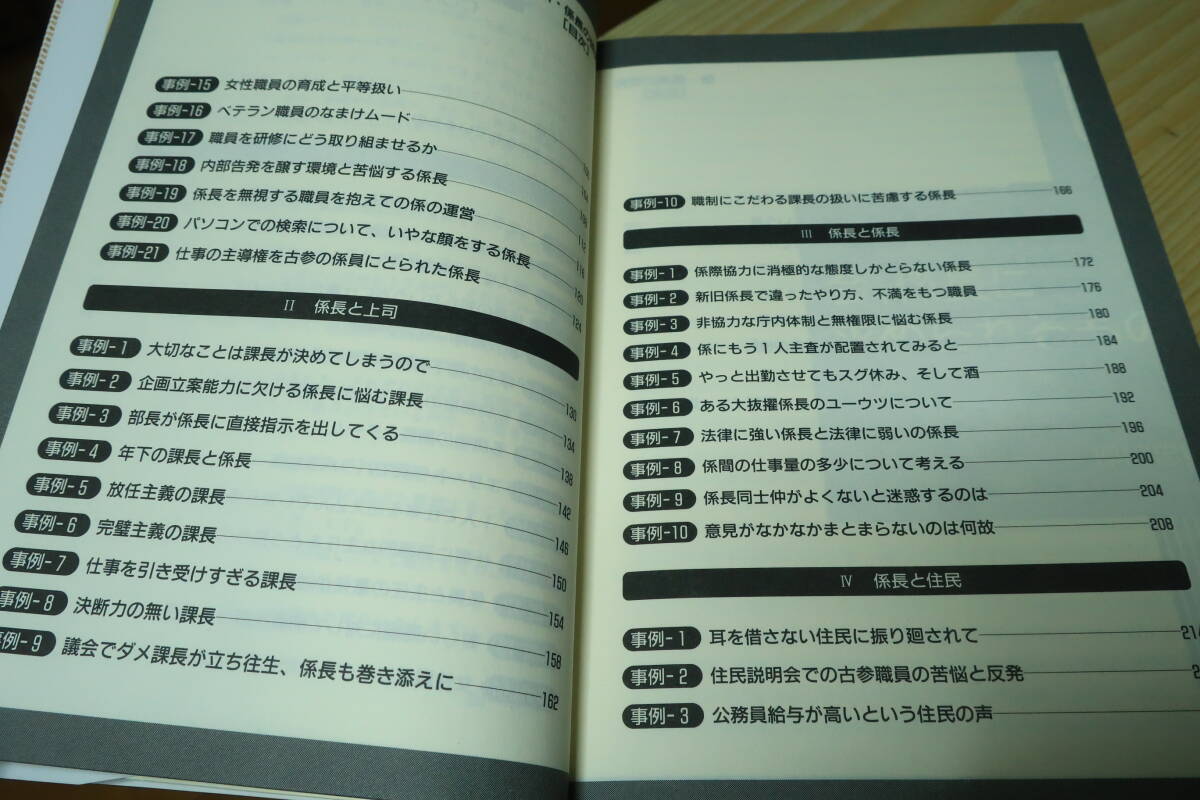 ・係長の
[目次]
事例-15 女性職員の育成と平等扱い
事例-16 ベテラン職員のなまけムード
事例-17 職員を研修にどう取り組ませるか
事例-18 内部告発を醸す環境と苦悩する係長
事例-19 係長を無視する職員を抱えての係の運営 112
事例-20 パソコンでの検索について、いやな顔をする係長 116
事例-21 仕事の主導権を古参の係員にとられた係長 120
124
II 係長と上司
事例-1 大切なことは課長が決めてしまうので 130
事例-2 企画立案能力に欠ける係長に悩む課長 134
事例-3 部長が係長に直接指示を出してくる 138
事例-4 年下の課長と係長 142
事例-5 放任主義の課長 146
事例-6 完璧主義の課長 150
事例-7 仕事を引き受けすぎる課長 154
事例-8 決断力の無い課長 158
事例-9 議会でダメ課長が立ち往生、係長も巻き添えに 162
事例-10 職制にこだわる課長の扱いに苦慮する係長 166
III 係長と係長
事例-1 係際協力に消極的な態度しかとらない係長 172
事例-2 新旧係長で違ったやり方、不満をもつ職員 176
事例-3 非協力な庁内体制と無権限に悩む係長 180
事例-4 係にもう1人主査が配置されてみると 184
事例-5 やっと出勤させてもスグ休み、そして酒 188
事例-6 ある大抜擢係長のユーウツについて 192
事例-7 法律に強い係長と法律に弱いの係長 196
事例-8 係間の仕事量の多少について考える 200
事例-9 係長同士仲がよくないと迷惑するのは 204
事例-10 意見がなかなかまとまらないのは何故 208
IV 係長と住民
事例-1 耳を借さない住民に振り廻されて 214
事例-2 住民説明会での古参職員の苦悩と反発
事例-3 公務員給与が高いという住民の声